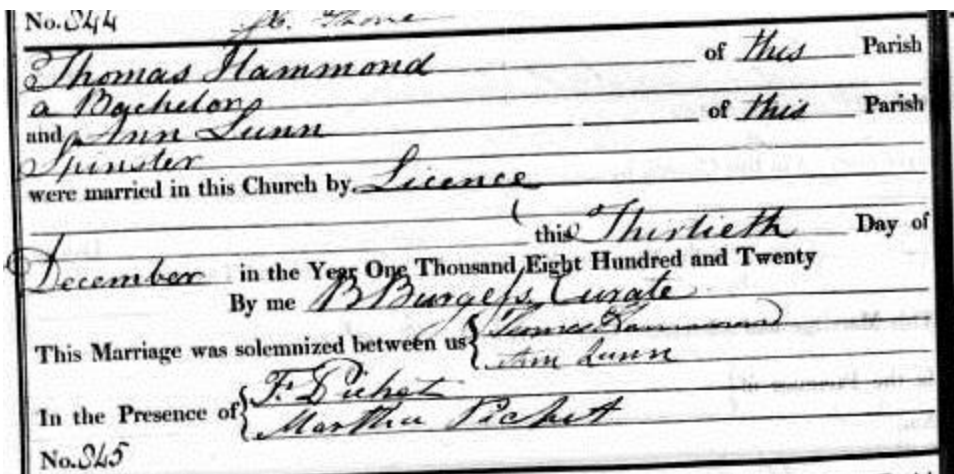 No. 344
Thomas Hammond of this Parish
a Bachelor
and Ann Lunn of this Parish
Spinster
were married in this Church by Licence
this Thirtieth Day of
December in the Year One Thousand Eight Hundred and Twenty
By me B Burgess, Curate
This Marriage was solemnized between us { Thomas Hammond
Ann Lunn
In the Presence of { F. Pichet
Martha Pichet
No. 345